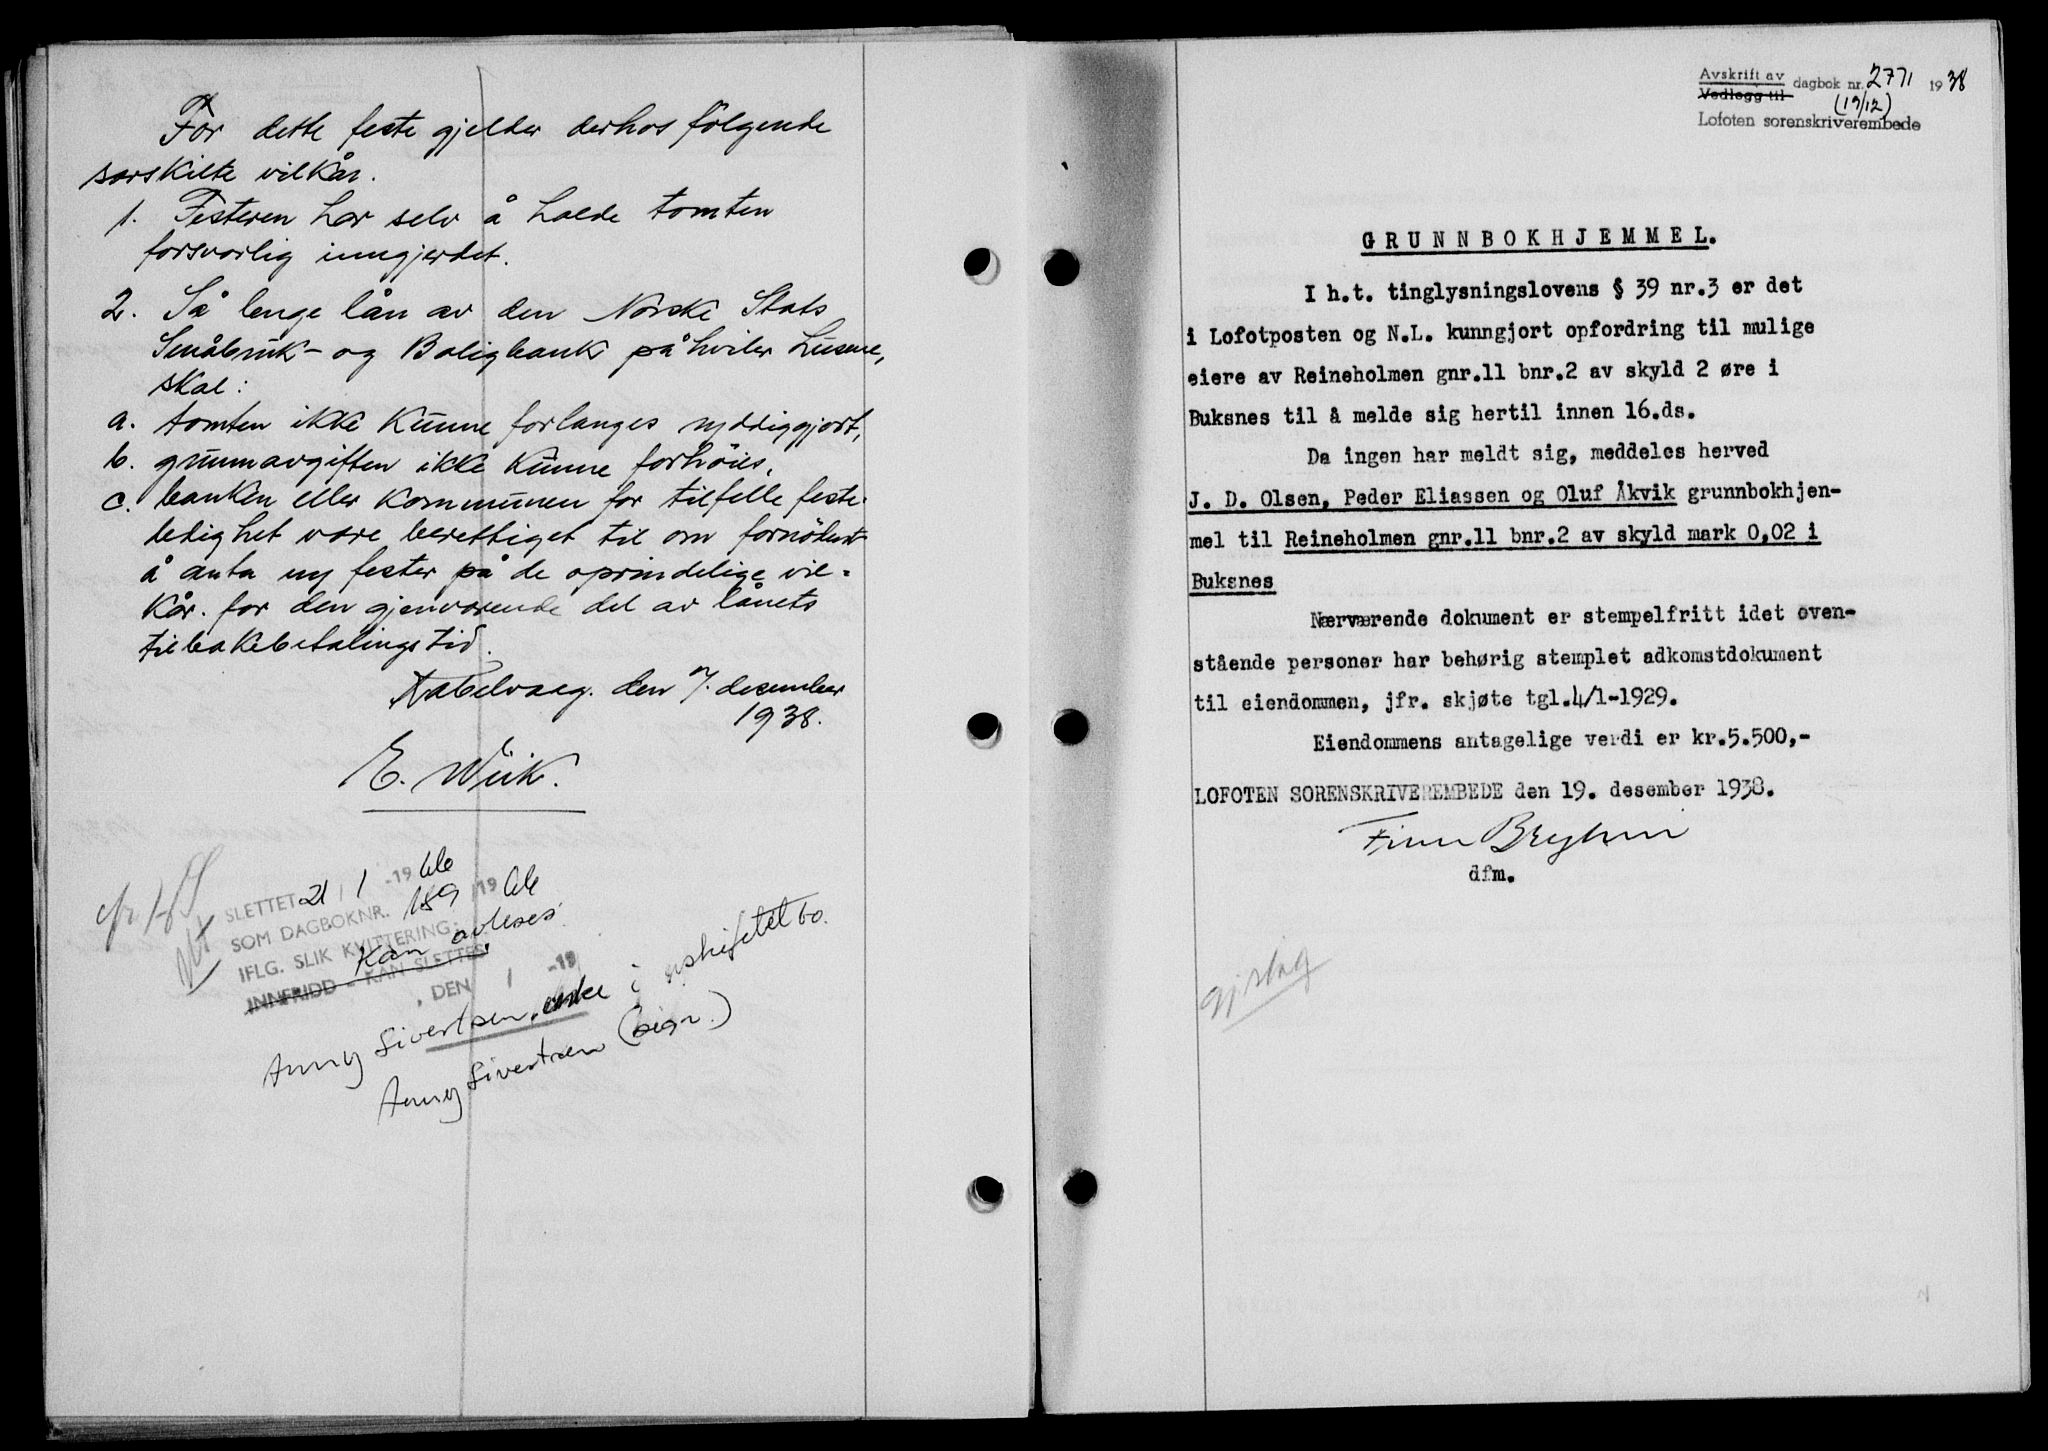 For dette feste gjelder derhos følgende
særskilte vilkår.
1. Festeren har selv å holde tomten
forsvarlig inngjerdet.
2. Så lenge lån av den Norske Stats
Småbruk- og Boligbank påhviler husene,
skal:
a. tomten ikke kunne forlanges ryddiggjort,
b. grunnavgiften ikke kunne forhöies,
c. banken eller kommunen for tilfelle feste-
ledighet være berettiget til om fornödent
å anta ny fester på de oprindelige vil-
kår for den gjenværende del av lånets
tilbakebetalingstid.
Kabelvaag den 7. desember
1938.
E. Wiik.
SLETTET 21 / 1 -19 66
SOM DAGBOKNR. 189 /19 66
IFLG. SLIK KVITTERING:
Kan avleses
INNFRIDD - KAN SLETTES
, DEN / -19
Anny Sivertsen, enke i uskiftet bo.
Anny Sivertsen (sign.)
Avskrift av
Vedlegg til
dagbok nr. 2771 1938
(19/12)
Lofoten sorenskriverembede
GRUNNBOKHJEMMEL.
I h.t. tinglysningslovens § 39 nr.3 er det
i Lofotposten og N.L. kunngjort opfordring til mulige
eiere av Reineholmen gnr.11 bnr.2 av skyld 2 øre i
Buksnes til å melde sig hertil innen 16.ds.
Da ingen har meldt sig, meddeles herved
J. D. Olsen, Peder Eliassen og Oluf Åkvik grunnbokhjem-
mel til Reineholmen gnr.11 bnr.2 av skyld mark 0,02 i
Buksnes
Nærværende dokument er stempelfritt idet oven-
stående personer har behørig stemplet adkomstdokument
til eiendommen, jfr. skjøte tgl.4/1-1929.
Eiendommens antagelige verdi er kr.5.500,-
LOFOTEN SORENSKRIVEREMBEDE den 19. desember 1938.
Finn Bryhni
dfm.